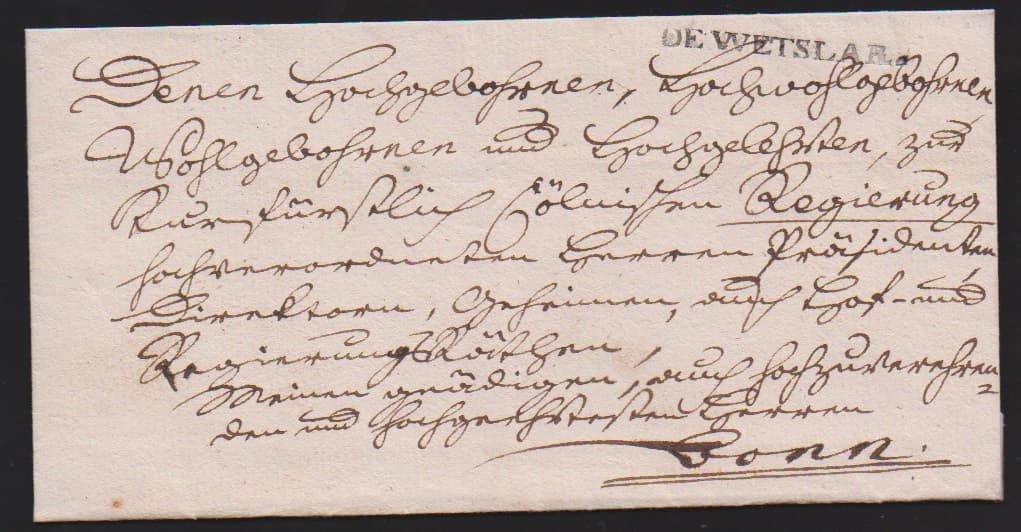 DE WETSLAR.
Denen Hochgebohrnen, Hochwohlgebohrnen
Wohlgebohrnen und Hochgelehrten, zur
Kurfürstlich Cölnischen Regierung
hochverordneten Herren Präsidenten
Direktorn, Geheimen, auch Hof- und
RegierungsRäthen,
Meinen gnädigen, auch hochzuverehren=
den und hochgeehrtesten Herren
Bonn.